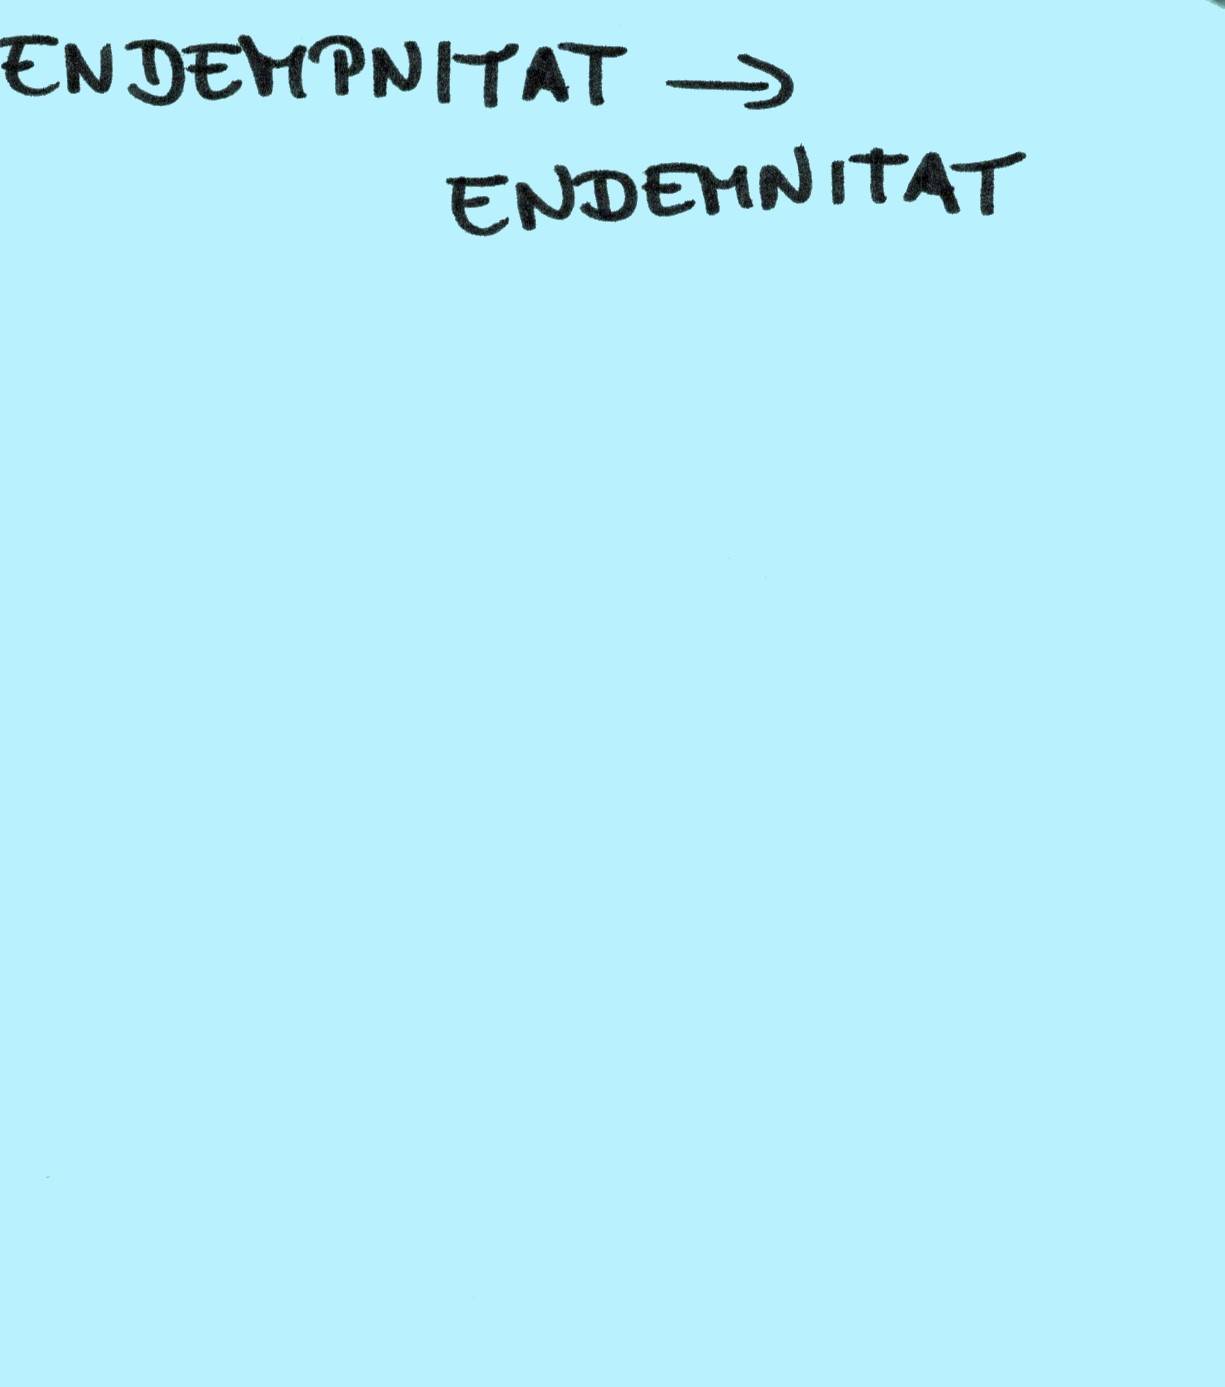 ENDEMPNITAT →
ENDEMNITAT